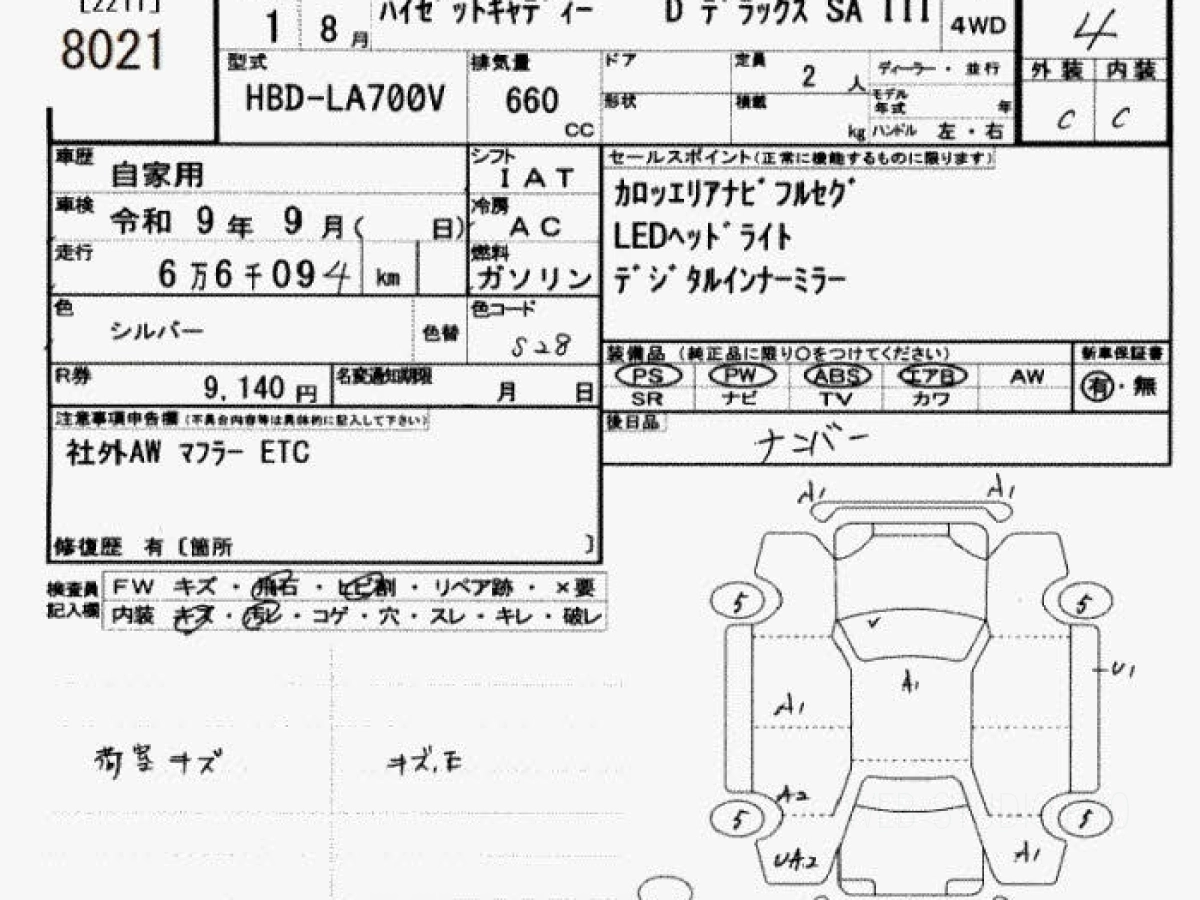 [2211]
8021
1 8 月
ハイゼットキャディー D デラックス SA III 4WD
4
型式 HBD-LA700V
排気量 660 CC
ドア
形状
定員 2 人
積載 kg
ディーラー ・ 並行
モデル年式 年
ハンドル 左 ・ 右
外装 内装
C C
車歴 自家用
シフト I A T
車検 令和 9 年 9 月 ( 日)
冷房 A C
走行 6 万 6 千 094 km
燃料 ガソリン
色 シルバー 色替
色コード S28
R券 9,140 円
名変通知期限 月 日
セールスポイント(正常に機能するものに限ります)
カロッエリアナビ フルセグ
LEDヘッドライト
デジタルインナーミラー
装備品 (純正品に限り○をつけてください)
新車保証書
PS PW ABS エアB AW
SR ナビ TV カワ
有 ・ 無
後日品 ナンバー
注意事項申告欄 (不具合内容等は具体的に記入して下さい)
社外AW マフラー ETC
修復歴 有 〔箇所 〕
検査員記入欄
FW キズ ・ 飛石 ・ ヒビ割 ・ リペア跡 ・ ×要
内装 キズ ・ 汚レ ・ コゲ ・ 穴 ・ スレ ・ キレ ・ 破レ
荷室キズ
キズ,E
A1 A1
5 5
A1
U1
A1
A2
5 5
UA2
A1